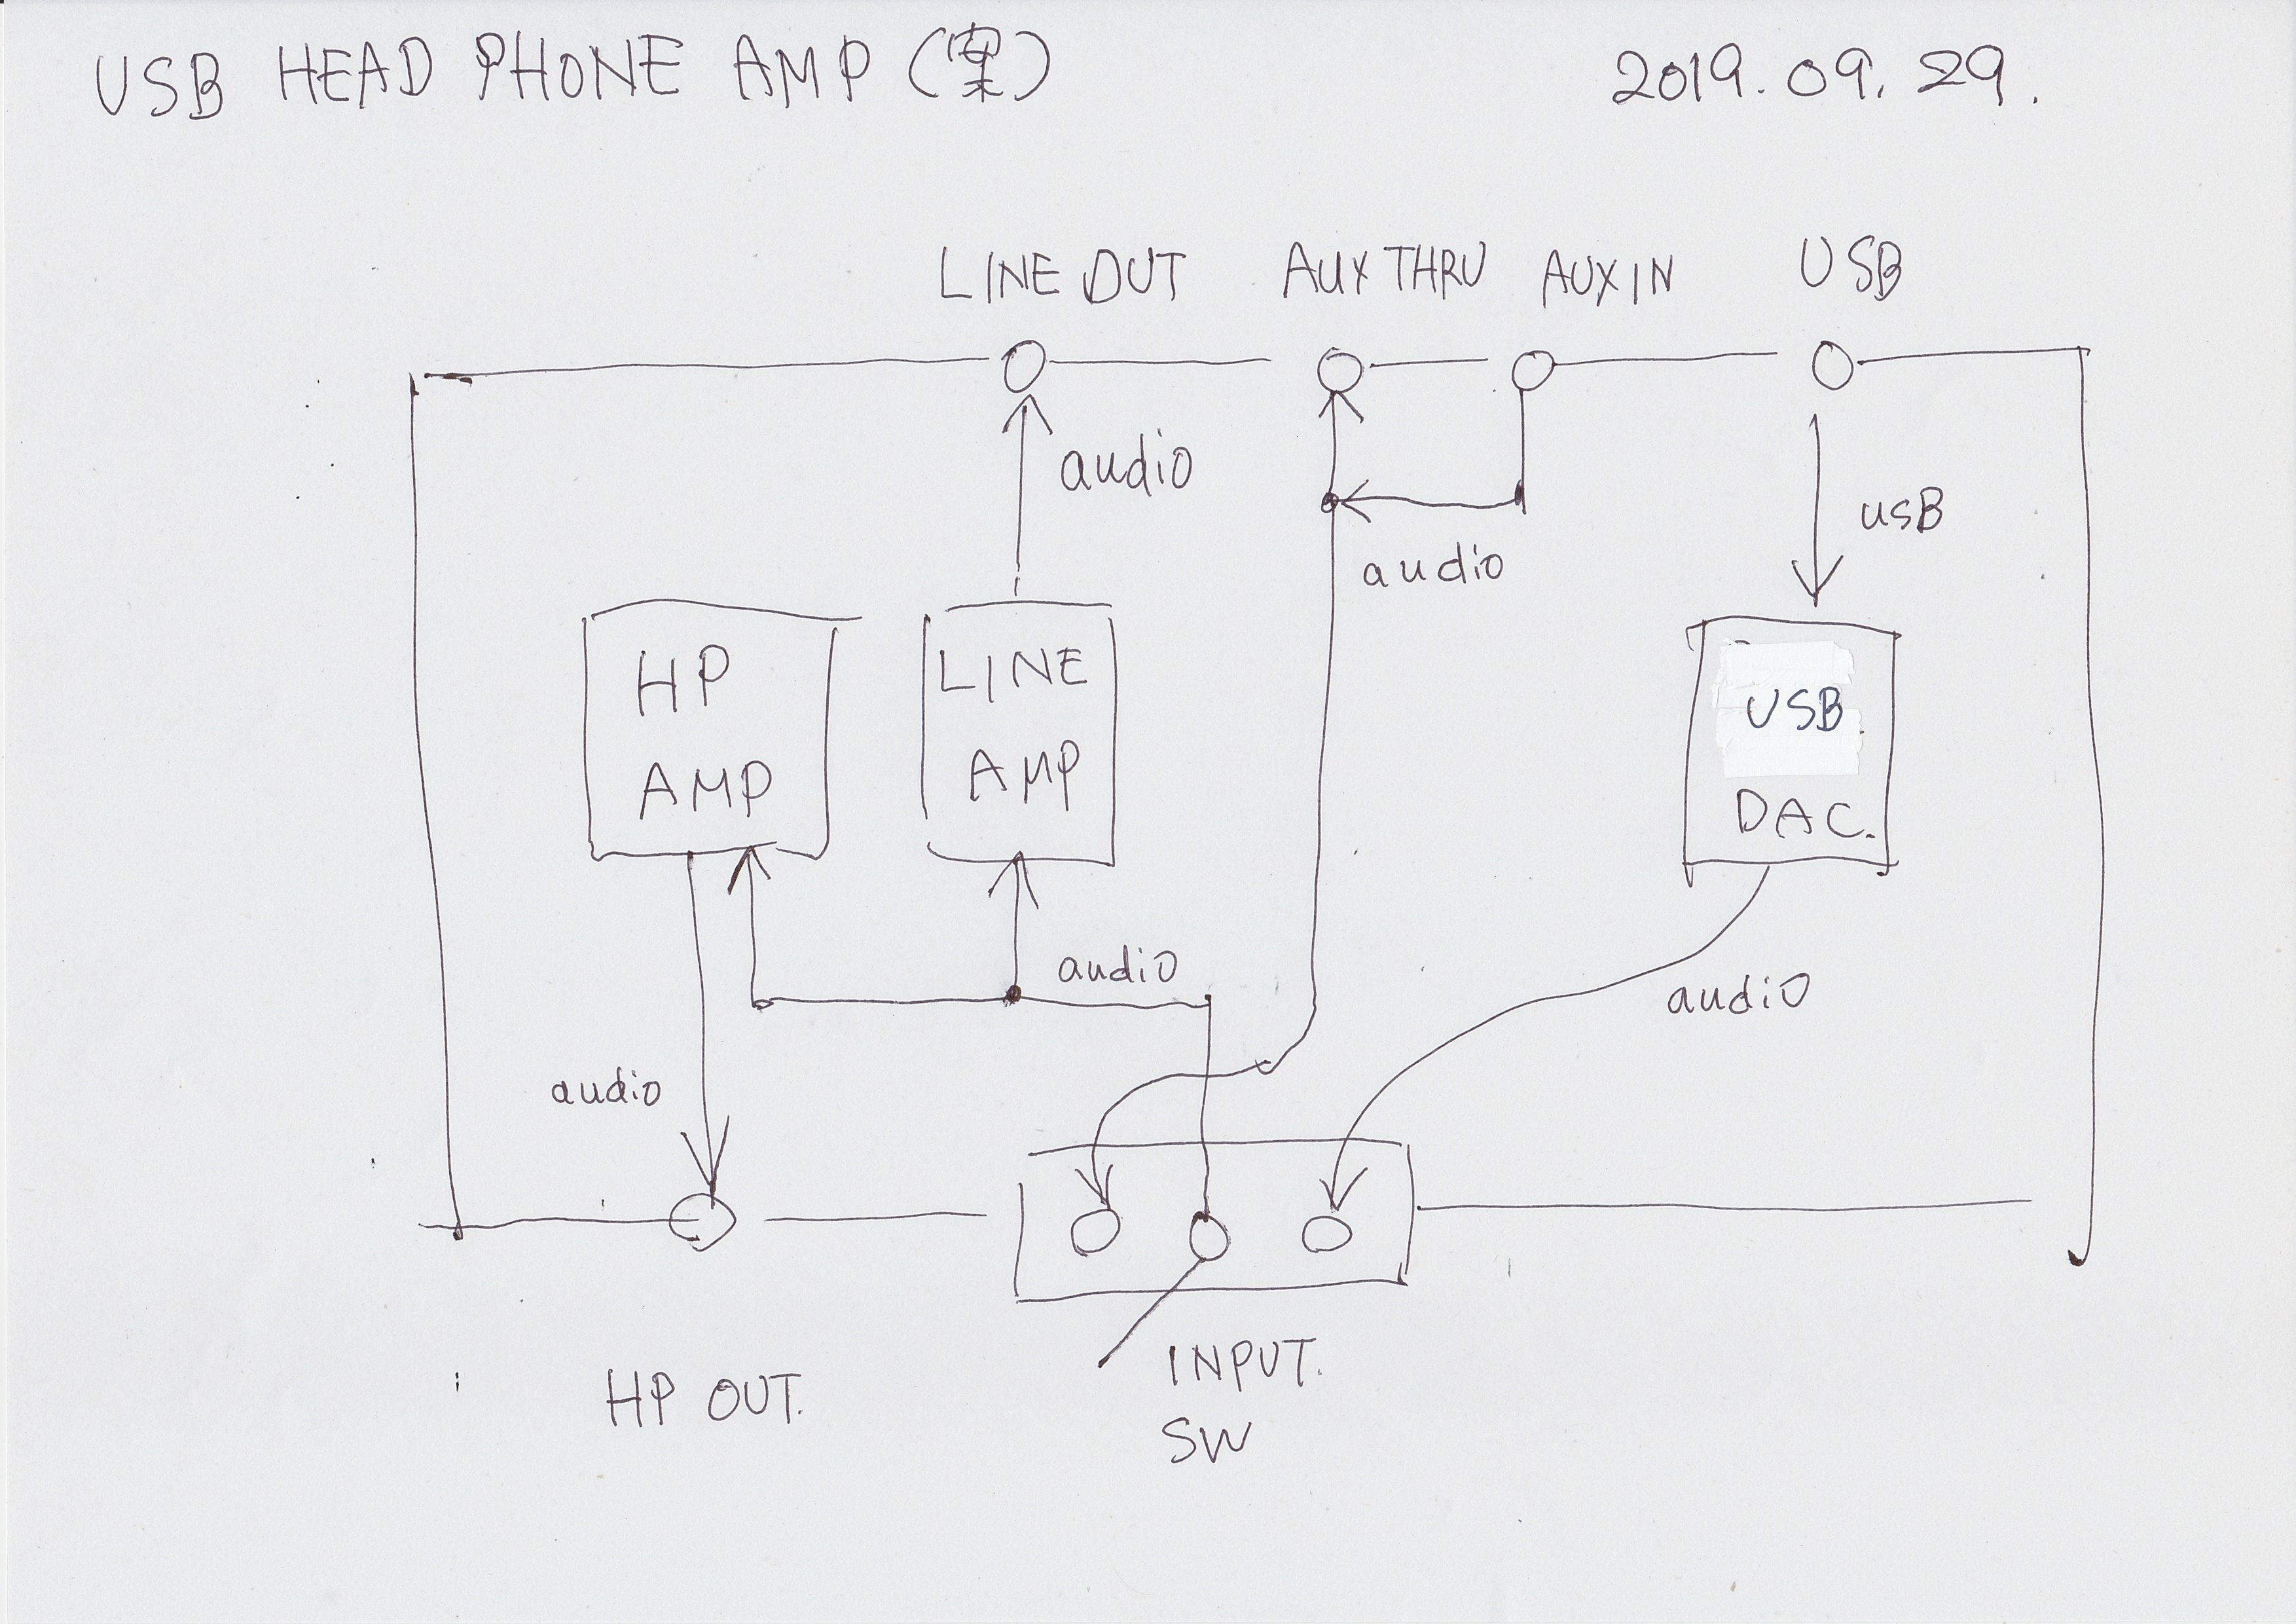 USB HEAD PHONE AMP (案)
2019. 09. 29.
LINE OUT
AUX THRU
AUX IN
USB
audio
audio
USB
HP
AMP
LINE
AMP
USB
DAC.
audio
audio
audio
HP OUT.
INPUT.
SW